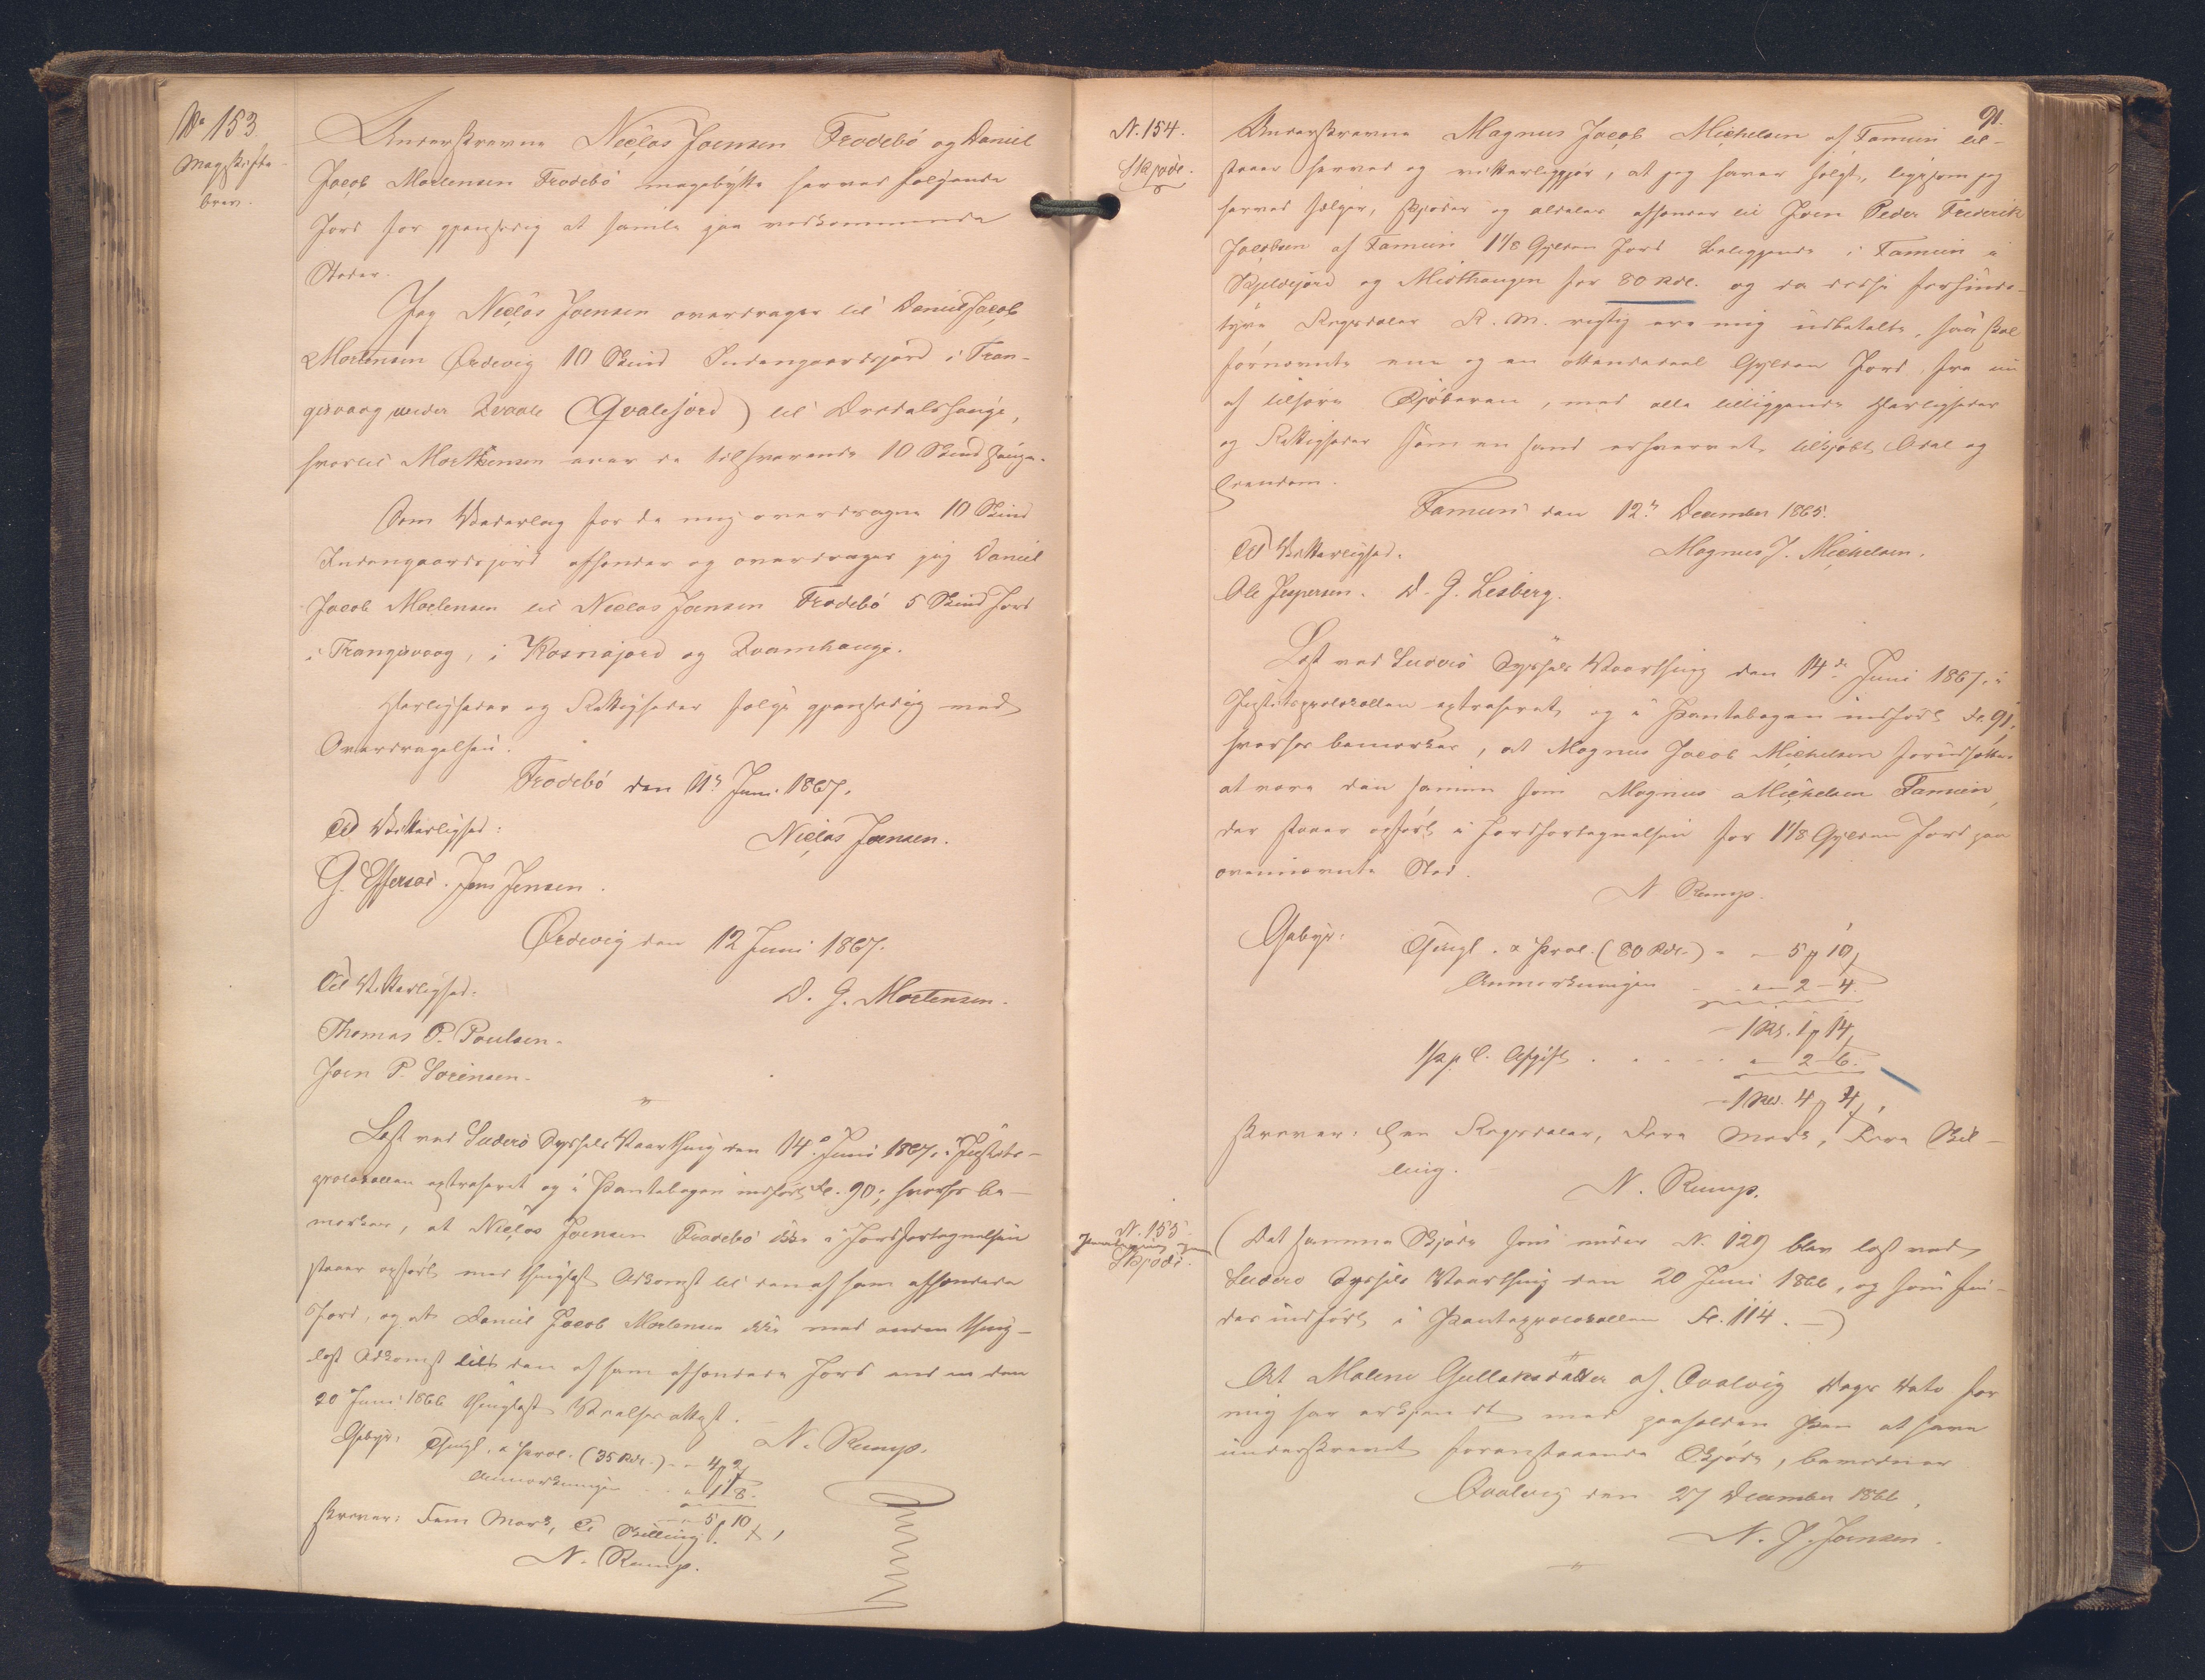 No 153.
Mageskifte-
brev.
Underskrevne Niclas Joensen Frodebö og Daniel
Jacob Mortensen Frodebö magebytte herved følgende
Jord for gjensidig at samle paa vedkommende
Steder.
Jeg Niclas Joensen overdrager til Daniel Jacob
Mortensen Ördevig 10 Skind Indengaardsjord i Tran-
gisvaag under Qvaale (Qvalejord) til Dredalshauge,
hvortil Morthensen ever de tilsvarende 10 Skind
Som Vederlag for de mig overdragne 10 Skind
Indengaardsjord afhender og overdrager jeg Daniel
Jacob Mortensen til Niclas Joensen Frodebö 5 Skind Jord
i Trangisvaag, i Kosnajord og Kvamhauge.
Herligheder og Rettigheder følge gjensidig med
Overdragelsen.
Frodebö den 11te Juni 1867.
Til Vitterlighed:
Niclas Joensen.
G. Effersøe. Jens Jensen.
Ördevig den 12 Juni 1867.
Til Vitterlighed:
D. J. Mortensen.
Thomas P. Poulsen.
Joen P. Sörensen.
Læst ved Suderö Syssels Vaarthing den 14de Juni 1867, i Justits-
protokollen extraheret og i Pantebogen indført Fo. 90; hvorhos be-
mærkes, at Niclas Joensen Frodebö ikke i Jordfortegnelsen
staaer opført med thinglæst Adkomst til den af ham afhændede
Jord, og at Daniel Jacob Mortensen ikke med anden thing-
læst Adkomst til den af ham afhændede Jord end en den
20 Juni 1866 thinglæst Skiftes attest.
N. Rump.
Gebyr: Thingl. & Prot. (35 Rdl.) - - 4 2
Anmærkningen - - 1 8.
- - 5 10
skrever: Fem Mark, Ti Skilling.
N. Rump.
91.
N. 154.
Skjøde.
Underskrevne Magnus Jacob Michelsen af Famien til-
staaer herved og vitterliggjør, at jeg haver solgt, ligesom jeg
herved sælger, skjøder og aldeles afhænder til Joen Peder Frederik
Jacobsen af Famien 1 1/8 Gylden Jord beliggende i Famien i
Kjeldejord og Misthaugen for 80 Rdl. og da disse fersinds-
tyve Rigsdaler R. M. rigtig ere mig udbetalte, saa skal
fornævnte een og en ottendedeel Gylden Jord fra nu
af tilhøre Kjöberen, med alle tilliggende Herligheder
og Rettigheder som en sand erhvervet, tilkjøbt Odel og
Eiendom.
Famien den 12te December 1865.
Til Vitterlighed.
Magnus J. Michelsen.
Ole Jespersen. D. J. Lisberg.
Læst ved Suderö Syssels Vaarthing den 14de Juni 1867, i
Justitsprotokollen extraheret, og i Pantebogen indført Fo. 91,
hvorhos bemærkes, at Magnus Jacob Michelsen forudsættes
at være den samme som Magnus Michelsen Famien,
der staaer opført i Jordfortegnelsen for 1 1/8 Gylden Jord paa
ovennævnte Sted.
N. Rump.
Gebyr: Thingl. & Prot. (80 Rdl.) - - 5 10
Anmærkningen - - 2 - 4.
- 1 Rd. 1 14
1/2 p. C. Afgift . . . . 2 - 6.
- 1 Rd. 4 4
skrever: Een Rigsdaler, Fire Mark, Fire Skil-
ling.
N. Rump.
N. 155.
Skjøde.
(Det samme Skjøde som under N. 129 blev læst ved
Suderö Syssels Vaarthing den 20 Juni 1866, og som fin-
des indført i Panteprotokollen Fo. 114. —)
At Malene Gullaksdatter af Qvalvig Dags Dato for
mig har erkjendt med paaholden Pen at have
underskrevet foranstaaende Skjøde, bevidner
Qvalvig den 27 December 1866.
N. J. Joensen.